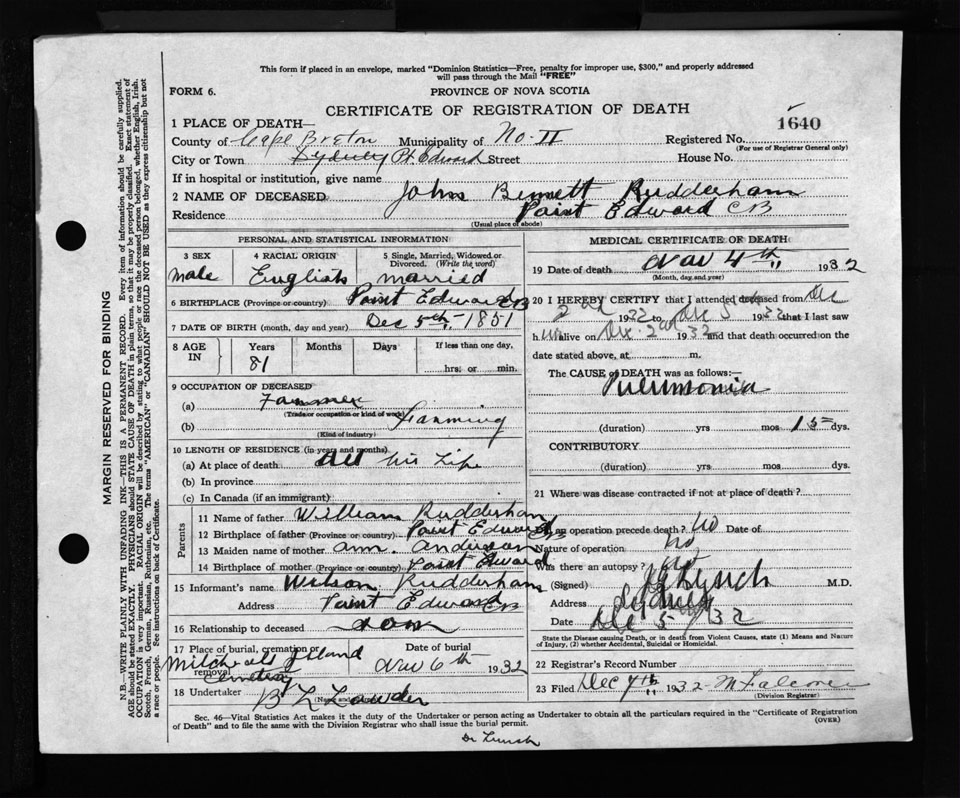 This form if placed in an envelope, marked "Dominion Statistics—Free, penalty for improper use, $300," and properly addressed
will pass through the Mail "FREE"
FORM 6.
PROVINCE OF NOVA SCOTIA
CERTIFICATE OF REGISTRATION OF DEATH
1640
1 PLACE OF DEATH—
County of Cape Breton Municipality of No. II Registered No.
(For use of Registrar General only)
City or Town Sydney Pt. Edward Street House No.
If in hospital or institution, give name
2 NAME OF DECEASED John Bennett Rudderham
Residence Point Edward CB
(Usual place of abode)
PERSONAL AND STATISTICAL INFORMATION
3 SEX 4 RACIAL ORIGIN 5 Single, Married, Widowed or Divorced. (Write the word)
male English married
6 BIRTHPLACE (Province or country) Point Edward CB
7 DATE OF BIRTH (month, day and year) Dec 5th, 1851
8 AGE IN Years Months Days If less than one day,
81 hrs. or min.
9 OCCUPATION OF DECEASED
(a) Farmer
(Trade or occupation or kind of work)
(b) Farming
(Kind of industry)
10 LENGTH OF RESIDENCE (in years and months)
(a) At place of death All his Life
(b) In province
(c) In Canada (if an immigrant)
Parents
11 Name of father William Rudderham
12 Birthplace of father (Province or country) Point Edward CB
13 Maiden name of mother Ann. Anderson
14 Birthplace of mother (Province or country) Point Edward
15 Informant's name Wilson Rudderham
Address Point Edward CB
16 Relationship to deceased son
17 Place of burial, cremation or removal Date of burial
Island Cemetery 6th 1932
18 Undertaker B L Lowder
MEDICAL CERTIFICATE OF DEATH
19 Date of death 4th, 1932
(Month, day and year)
20 I HEREBY CERTIFY that I attended deceased from Dec
2nd 1932 to Dec 3 1932 that I last saw
h im alive on Dec. 2nd 1932 and that death occurred on the
date stated above, at m.
The CAUSE of DEATH was as follows:—
Pneumonia
(duration) yrs mos dys.
CONTRIBUTORY
(duration) yrs mos dys.
21 Where was disease contracted if not at place of death?
an operation precede death? No Date of
Nature of operation No
Was there an autopsy?
(Signed) Lynch M.D.
Address Sydney
Date Dec 5/32
State the Disease causing Death, or in death from Violent Causes, state (1) Means and Nature
of Injury, (2) whether Accidental, Suicidal or Homicidal.
22 Registrar's Record Number
23 Filed Dec 4th 1932
(Division Registrar)
Sec. 46—Vital Statistics Act makes it the duty of the Undertaker or person acting as Undertaker to obtain all the particulars required in the "Certificate of Registration
of Death" and to file the same with the Division Registrar who shall issue the burial permit. (OVER)
Dr Lynch
MARGIN RESERVED FOR BINDING
N.B.—WRITE PLAINLY WITH UNFADING INK—THIS IS A PERMANENT RECORD. Every item of information should be carefully supplied.
AGE should be stated EXACTLY. PHYSICIANS should STATE CAUSE OF DEATH in plain terms, so that it may be properly classified. Exact statement of
OCCUPATION is very important. RACIAL ORIGIN will be described by stating to what people or race the deceased person belonged, whether English, Irish,
Scotch, French, German, Russian, Ruthenian, etc. The terms "AMERICAN" or "CANADIAN" SHOULD NOT BE USED as they express citizenship but not
a race or people. See instructions on back of Certificate.